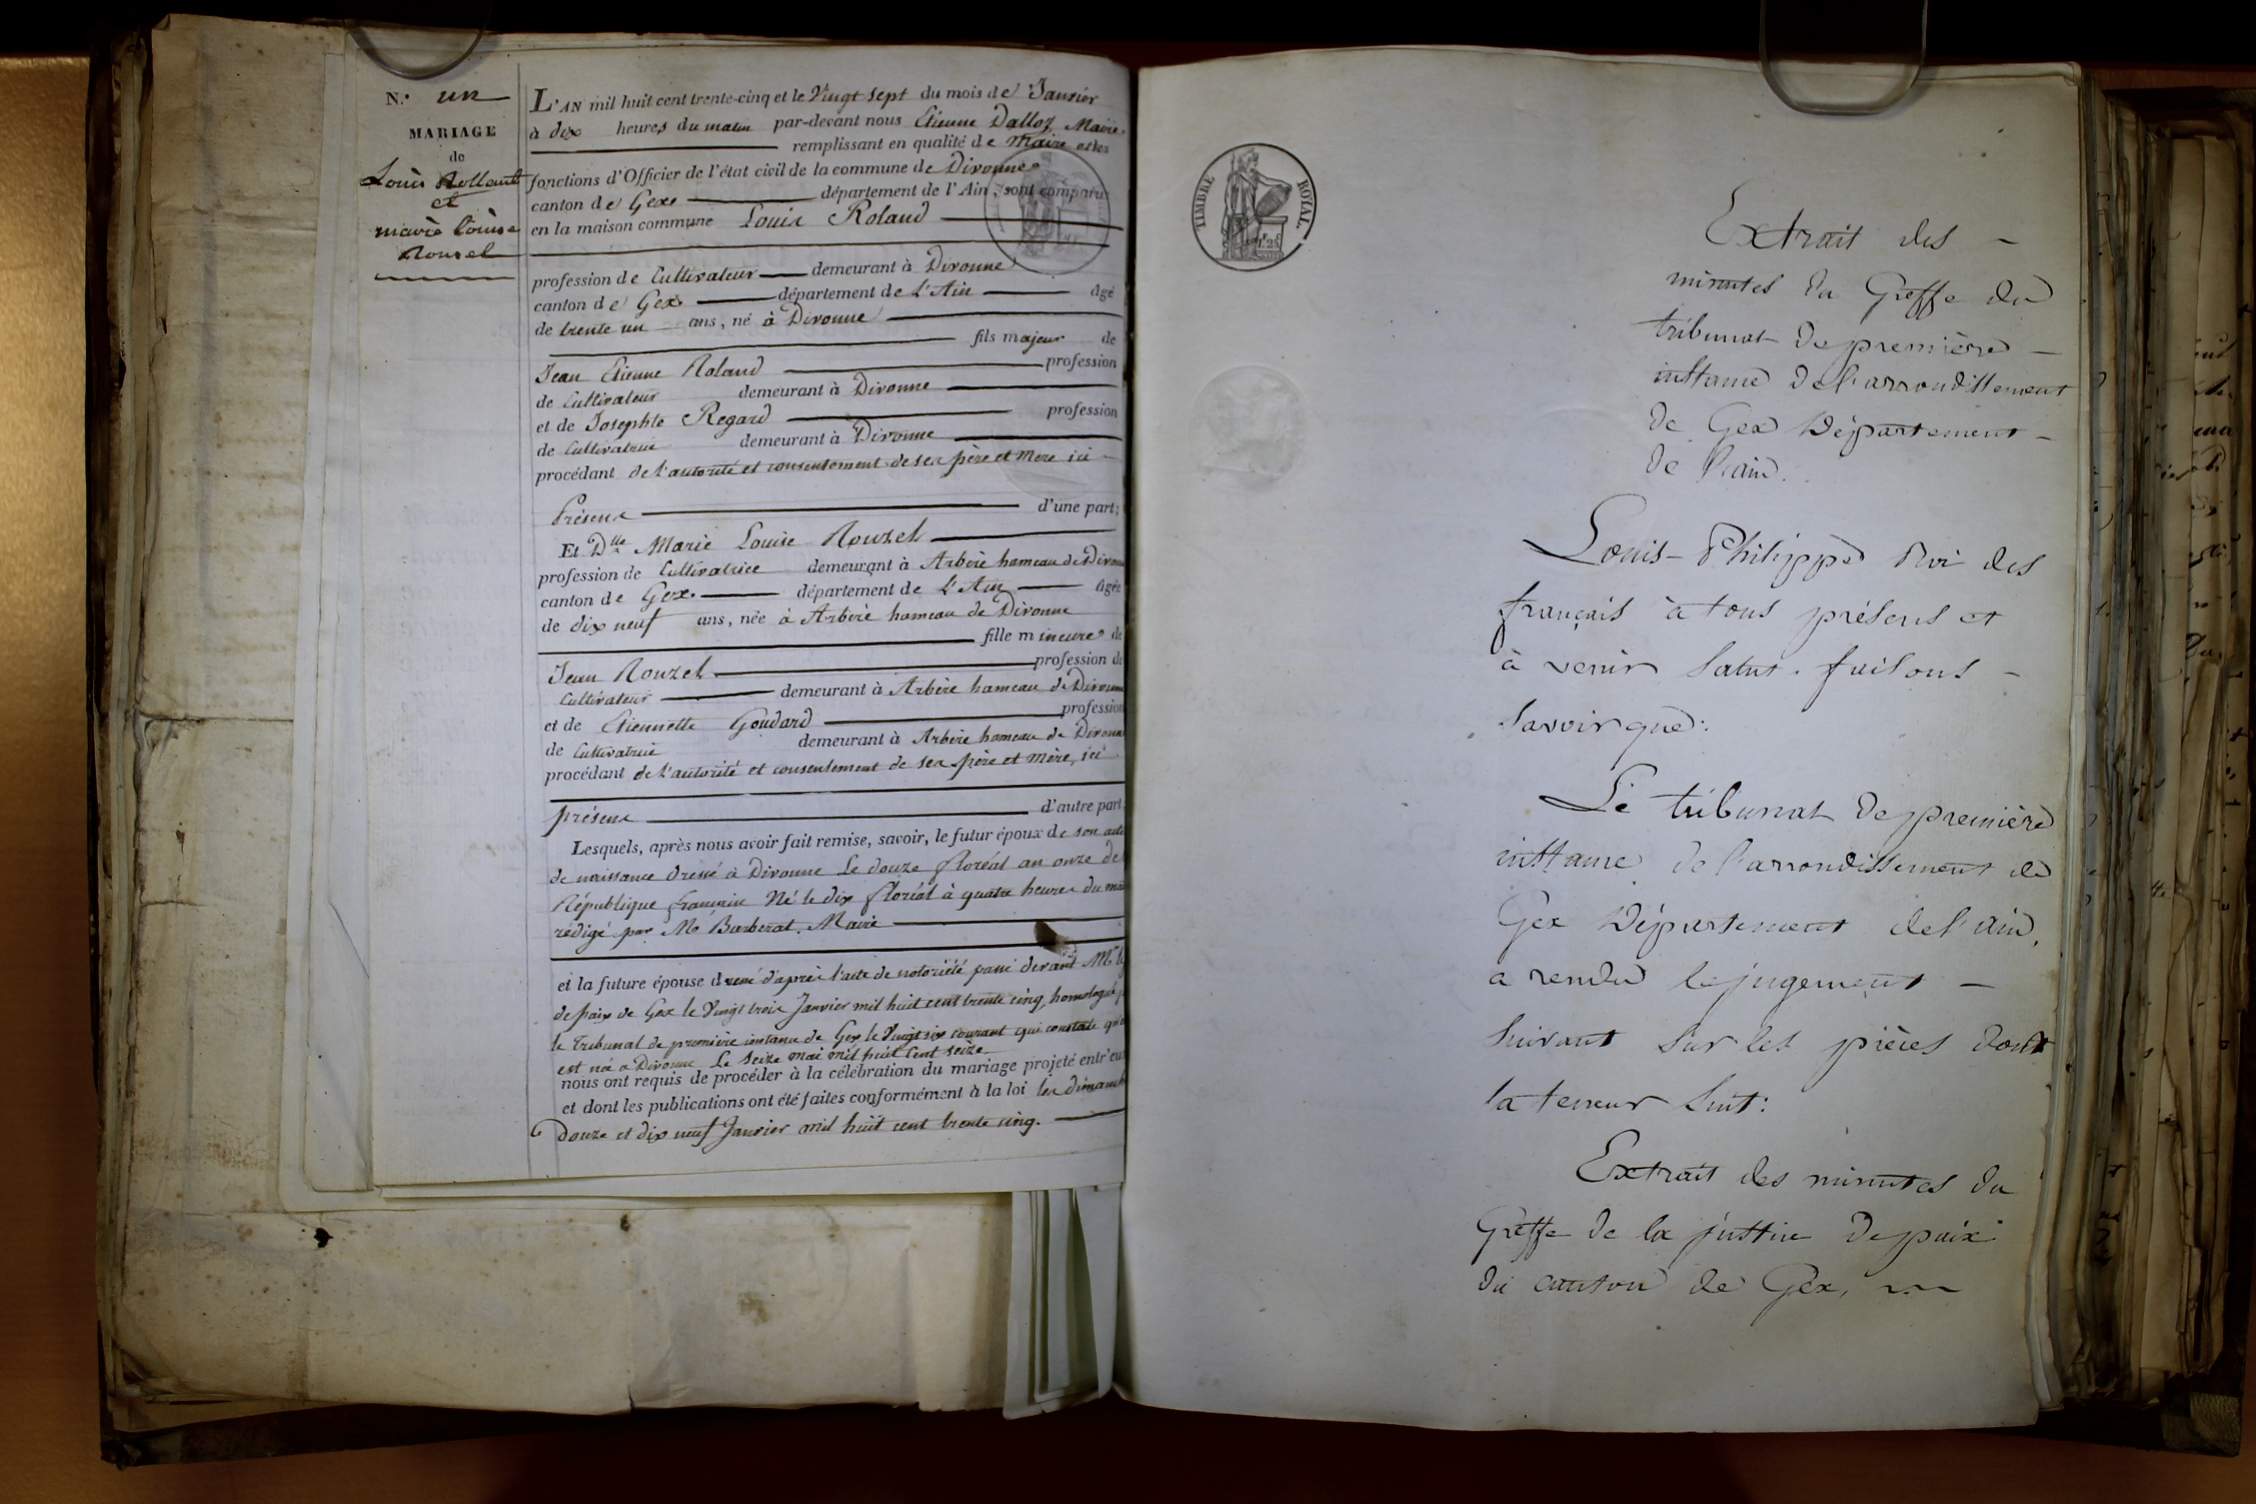 N.° un
MARIAGE
de
Louis Rolland
et
marie louise
Rouzel
L'AN mil huit cent trente-cinq et le Vingt sept du mois de Janvier
à dix heures du matin par-devant nous Etienne Dalloz, Maire
remplissant en qualité de Maire les
fonctions d'Officier de l'état civil de la commune de Divonne
canton de Gex département de l'Ain, sont comparus
en la maison commune Louis Roland
profession de Cultivateur demeurant à Divonne
canton de Gex département de L'Ain âgé
de trente un ans, né à Divonne
fils majeur de
Jean Etienne Roland profession
de Cultivateur demeurant à Divonne
et de Josephte Regard profession
de Cultivatrice demeurant à Divonne
procédant de l'autorité et consentement de ses père et mère ici
Présens d'une part;
Et Dlle Marie Louise Rouzel
profession de Cultivatrice demeurant à Arbère hameau de Divonne
canton de Gex département de L'Ain âgée
de dix neuf ans, née à Arbère hameau de Divonne
fille mineure de
Jean Rouzel profession de
Cultivateur demeurant à Arbère hameau de Divonne
et de Etiennette Goudard profession
de Cultivatrice demeurant à Arbère hameau de Divonne
procédant de l'autorité et consentement de ses père et mère, ici
présens d'autre part
Lesquels, après nous avoir fait remise, savoir, le futur époux de son acte
de naissance dressé à Divonne Le douze floréal an onze de
République française Né le dix floréal à quatre heures du
rédigé par Mr Barberat, Maire
et la future épouse d'après l'acte de notoriété passé devant Mr
de paix de Gex le Vingt trois Janvier mil huit cent trente cinq, homologué
le Tribunal de première instance de Gex le Vingt six courant qui constate
est née a Divonne Le Seize mai mil huit Cent seize
nous ont requis de procéder à la célébration du mariage projeté entr'eux
et dont les publications ont été faites conformément à la loi les dimanches
douze et dix neuf Janvier mil huit cent trente cinq.
TIMBRE ROYAL
Extrait des
minutes du Greffe du
tribunal de première
instance de l'arrondissement
de Gex Département
de l'ain.
Louis-Philippe Roi des
français à tous présens et
à venir Salut. faisons
Savoir que:
Le tribunal de première
instance de l'arrondissement de
Gex Département de l'ain,
a rendu le jugement
Suivant Sur les pièces dont
la teneur Suit:
Extrait des minutes du
Greffe de la justice de paix
du canton de Gex,